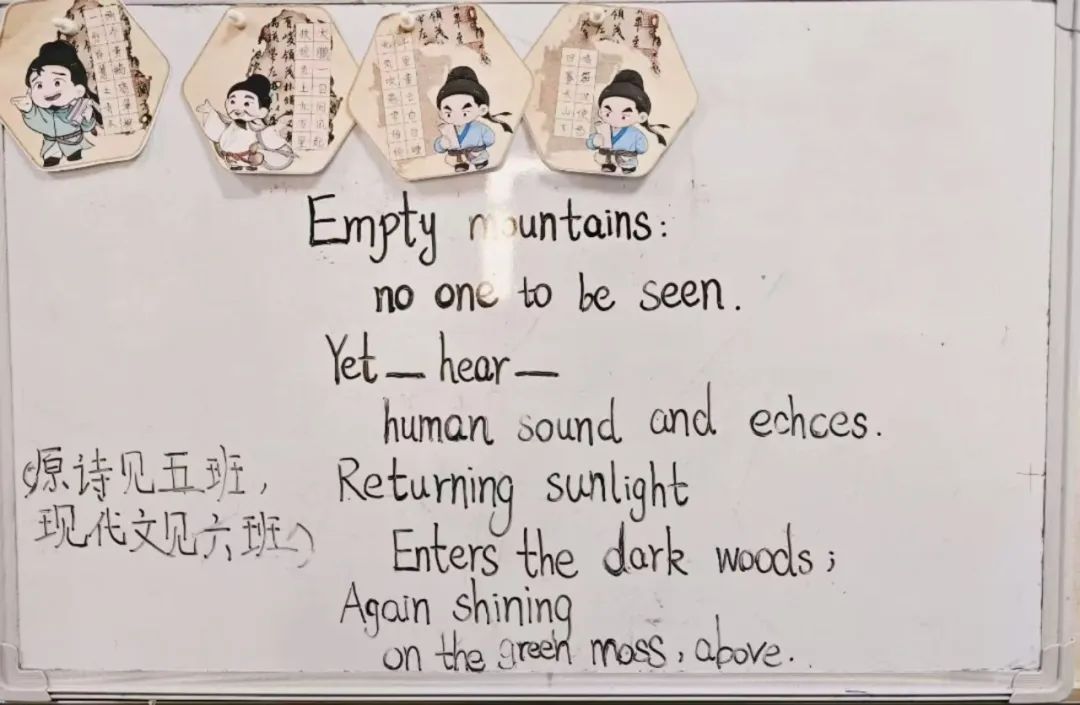 Empty mountains:
no one to be seen.
Yet — hear —
human sound and echces.
(原诗见五班,
现代文见六班)
Returning sunlight
Enters the dark woods;
Again shining
on the green moss, above.